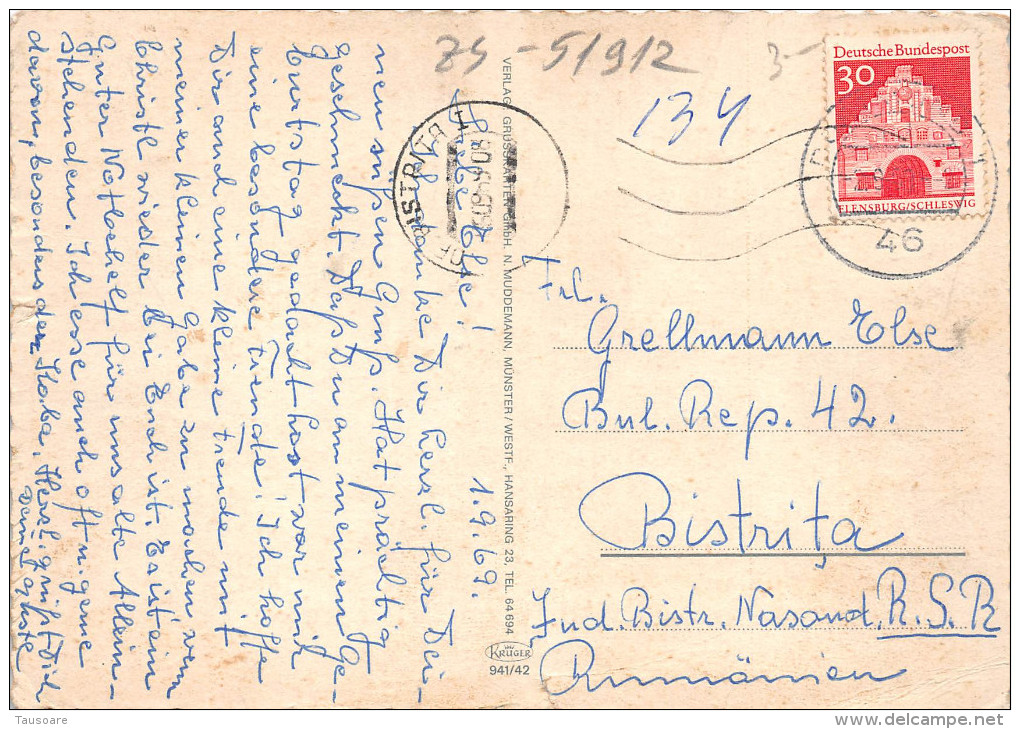 Liebe Else!
1.9.69.
Ich danke Dir herzl. für Dei-
nen süßen Gruß. Hat prächtig
geschmeckt. Daß Du an meinen Ge-
burtstag gedacht hast war mir
eine besondere Freude! Ich hoffe
Dir auch eine kleine Freude mit
meiner kleinen Gabe zu machen wenn
Christl wieder bei Euch ist. Es ist ein
guter Notbehelf für uns alte Allein-
stehenden. Ich esse auch oft u. gerne
davon, besonders der Herzl. grüßt Dich
Deine
VERLAG GRUSSKARTEN-GmbH. N. MUDDEMANN, MÜNSTER/WESTF., HANSARING 23, TEL. 64 694
KRÜGER
941/42
75 - 51912
3-
134
Deutsche Bundespost
30
FLENSBURG/SCHLESWIG
46
Frl.
Grellmann Else
Bul. Rep. 42.
Bistrița
Jud. Bistr. Nasaud R.S.R
Rumänien
Tausoare
www.delcampe.net